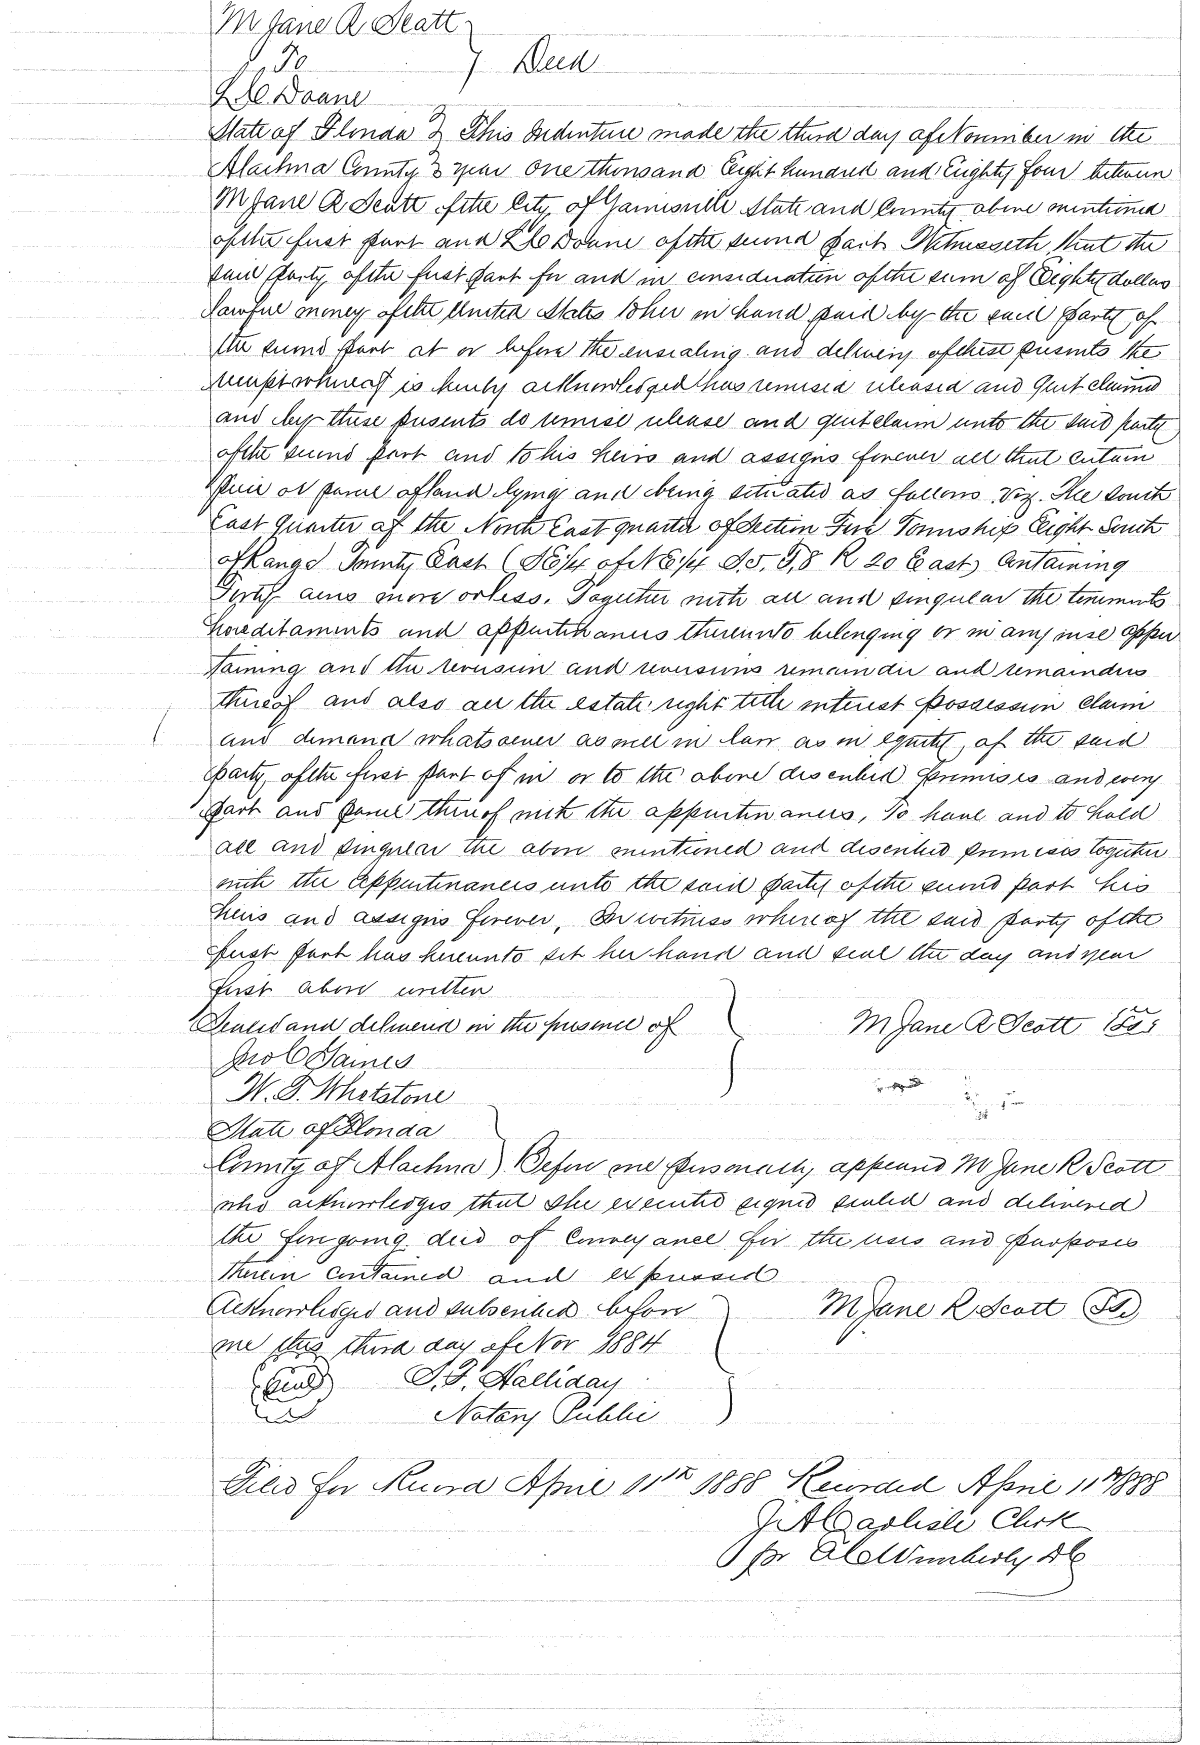 M Jane R Scott
To } Deed
L C Doane
State of Florida } This Indenture made the third day of November in the
Alachua County } year one thousand Eight hundred and Eighty four between
M Jane R Scott of the City of Gainesville State and County above mentioned
of the first part and L C Doane of the second part Witnesseth that the
said party of the first part for and in consideration of the sum of Eighty dollars
lawful money of the United States to her in hand paid by the said party of
the second part at or before the ensealing and delivery of these presents the
receipt whereof is hereby acknowledged has remised released and quit claimed
and by these presents do remise release and quit claim unto the said party
of the second part and to his heirs and assigns forever all that certain
piece or parcel of land lying and being situated as follows viz. The South
East quarter of the North East quarter of Section Five Township Eight South
of Range Twenty East (SE 1/4 of NE 1/4 S.5, T,8 R 20 East) Containing
Forty acres more or less. Together with all and singular the tenements
hereditaments and appurtenances thereunto belonging or in any wise apper
taining and the reversion and reversions remainder and remainders
thereof and also all the estate right title interest possession claim
and demand whatsoever as well in law as in equity, of the said
party of the first part of in or to the above described premises and every
part and parcel thereof with the appurtenances, To have and to hold
all and singular the above mentioned and described premises together
with the appurtenances unto the said party of the second part his
heirs and assigns forever, In witness whereof the said party of the
first part has hereunto set her hand and seal the day and year
first above written
Sealed and delivered in the presence of } M Jane R Scott
Jno C Gaines
W. F. Whetstone
State of Florida
County of Alachua) Before me personally appeared M Jane R Scott
who acknowledges that she executed signed sealed and delivered
the foregoing deed of Conveyance for the uses and purposes
therein contained and expressed
Acknowledged and subscribed before } M Jane R Scott
me this third day of Nov 1884
(Seal) S. F. Halliday
Notary Public
Filed for Record April 11th 1888 Recorded April 11th 1888
J A Carlisle Clerk
pr C C Wimberly DC